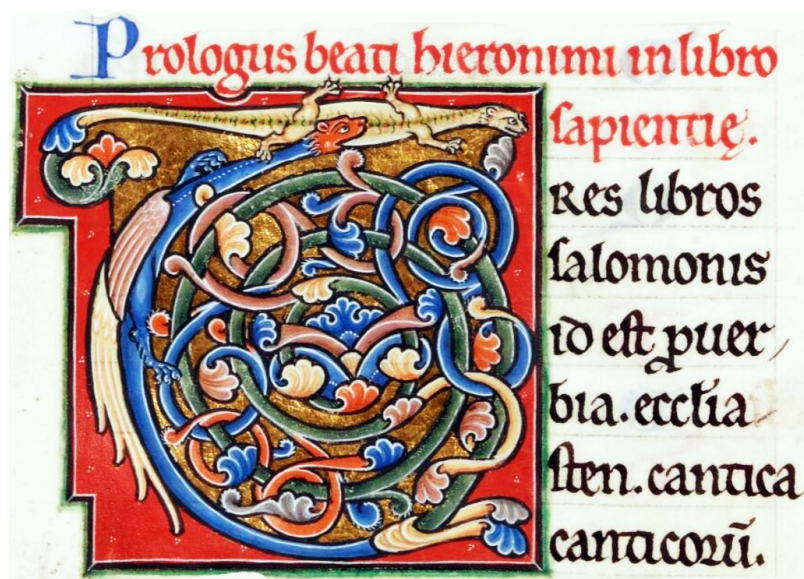 Prologus beati hieronimi in libro
sapientię.
TRes libros
salomonis
id est ꝓuer
bia. eccl̅ia
sten. cantica
canticoꝝ̅.